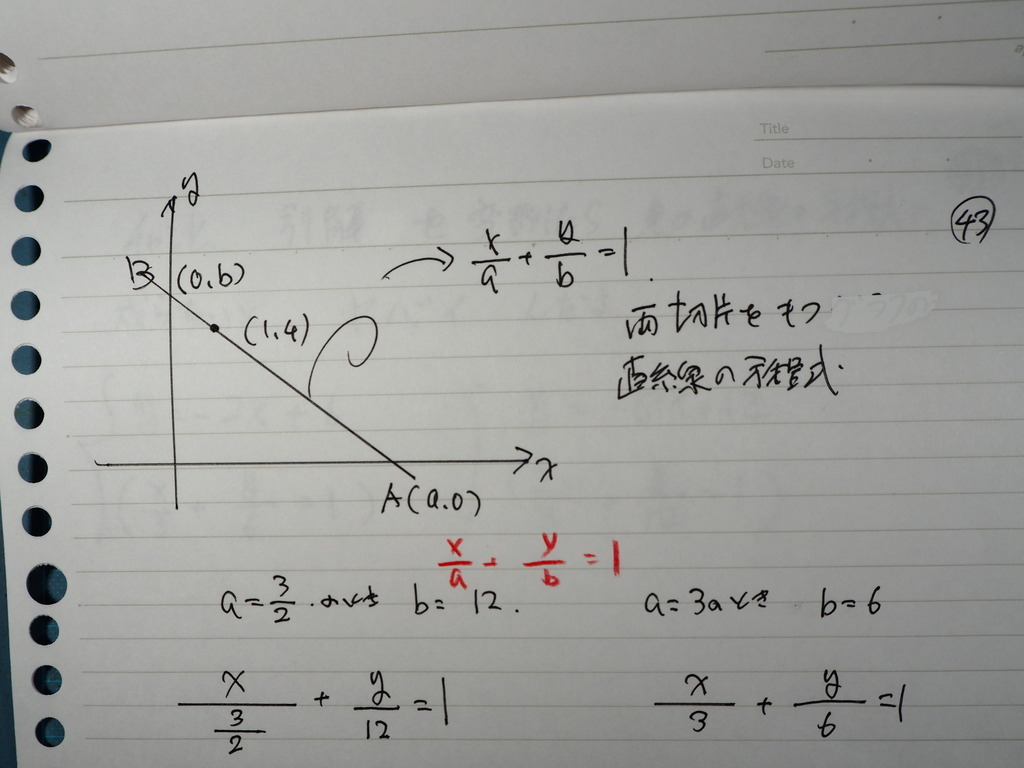 Title
Date
43
y
B (0,b)
x/a + y/b = 1.
(1,4)
両切片をもつ
直線の方程式.
x
A(a,0)
x/a + y/b = 1
a = 3/2 のとき b = 12. a = 3のとき b = 6
x/(3/2) + y/12 = 1 x/3 + y/6 = 1